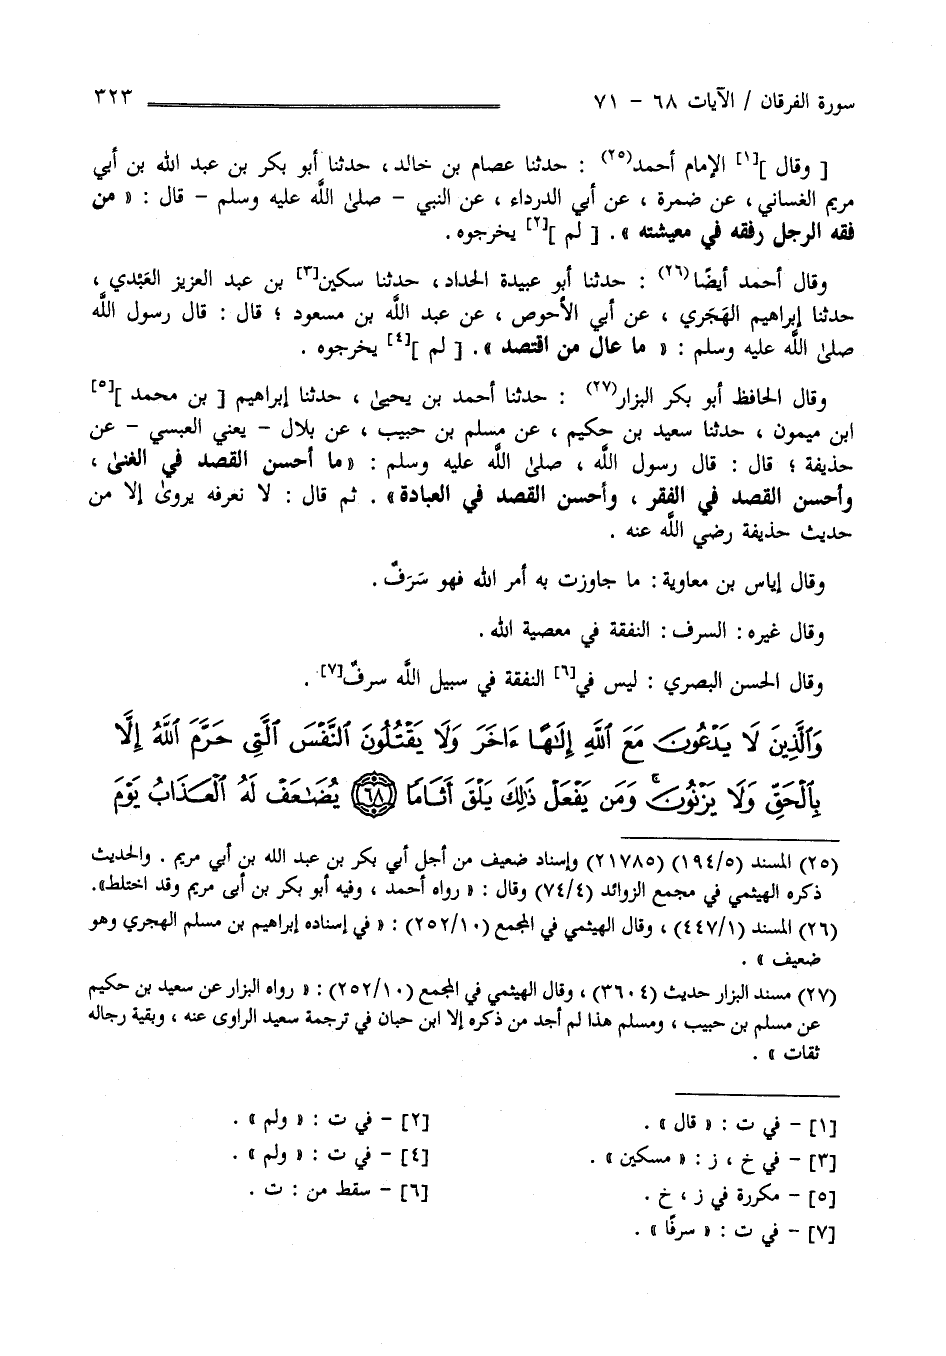 سورة الفرقان / الآيات ٦٨ - ٧١ ٣٢٣
[ وقال ][١] الإمام أحمد(٢٥) : حدثنا عصام بن خالد، حدثنا أبو بكر بن عبد الله بن أبي
مريم الغساني، عن ضمرة ، عن أبي الدرداء ، عن النبي - صلىٰ اللَّه عليه وسلم - قال : « من
فقه الرجل رفقه في معيشته » . [ لم ][٢] يخرجوه .
وقال أحمد أيضًا(٢٦) : حدثنا أبو عبيدة الحداد، حدثنا سكين[٣] بن عبد العزيز العَبْدي ،
حدثنا إبراهيم الهَجَري ، عن أبي الأحوص ، عن عبد اللَّه بن مسعود ؛ قال : قال رسول اللَّه
صلىٰ اللَّه عليه وسلم : « ما عال من اقتصد » . [ لم ][٤] يخرجوه .
وقال الحافظ أبو بكر البزار(٢٧) : حدثنا أحمد بن يحيىٰ ، حدثنا إبراهيم [ بن محمد ][٥]
ابن ميمون ، حدثنا سعيد بن حكيم ، عن مسلم بن حبيب ، عن بلال - يعني العبسي - عن
حذيفة ؛ قال : قال رسول اللَّه ، صلىٰ اللَّه عليه وسلم : «ما أحسن القصد في الغنىٰ ،
وأحسن القصد في الفقر ، وأحسن القصد في العبادة» . ثم قال : لا نعرفه يروىٰ إلا من
حديث حذيفة رضي اللَّه عنه .
وقال إياس بن معاوية : ما جاوزت به أمر الله فهو سَرَفٌ .
وقال غيره : السرف : النفقة في معصية الله .
وقال الحسن البصري : ليس في[٦] النفقة في سبيل اللَّه سرفٌ[٧] .
وَٱلَّذِينَ لَا يَدْعُونَ مَعَ ٱللَّهِ إِلَٰهًا ءَاخَرَ وَلَا يَقْتُلُونَ ٱلنَّفْسَ ٱلَّتِى حَرَّمَ ٱللَّهُ إِلَّا
بِٱلْحَقِّ وَلَا يَزْنُونَ ۚ وَمَن يَفْعَلْ ذَٰلِكَ يَلْقَ أَثَامًا ٦٨ يُضَٰعَفْ لَهُ ٱلْعَذَابُ يَوْمَ
(٢٥) المسند (١٩٤/٥) (٢١٧٨٥) وإسناد ضعيف من أجل أبي بكر بن عبد الله بن أبي مريم . والحديث
ذكره الهيثمي في مجمع الزوائد (٧٤/٤) وقال : « رواه أحمد ، وفيه أبو بكر بن أبى مريم وقد اختلط».
(٢٦) المسند (٤٤٧/١) ، وقال الهيثمي في المجمع (٢٥٢/١٠) : « في إسناده إبراهيم بن مسلم الهجري وهو
ضعيف » .
(٢٧) مسند البزار حديث (٣٦٠٤) ، وقال الهيثمي في المجمع (٢٥٢/١٠) : « رواه البزار عن سعيد بن حكيم
عن مسلم بن حبيب ، ومسلم هذا لم أجد من ذكره إلا ابن حبان في ترجمة سعيد الراوى عنه ، وبقية رجاله
ثقات » .
[١] - في ت : « قال » . [٢] - في ت : « ولم » .
[٣] - في خ ، ز : « مسكين » . [٤] - في ت : « ولم » .
[٥] - مكررة في ز ، خ . [٦] - سقط من : ت .
[٧] - في ت : « سرفًا » .